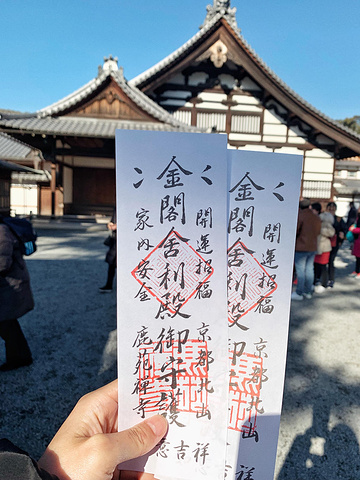 開運招福 京都北山
金閣舎利殿御守護
家内安全 鹿苑禅寺
意吉祥
開運招福 京都北山
金閣舎利殿御